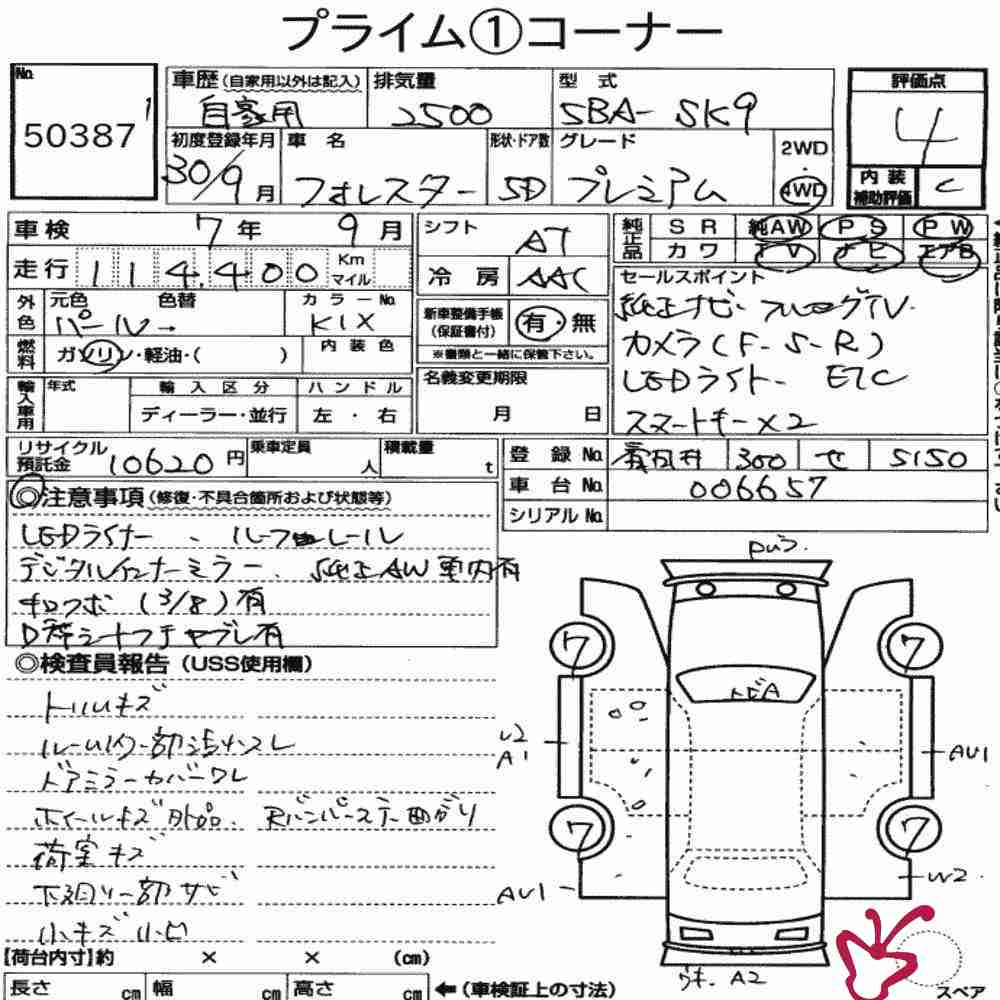 プライム①コーナー
No.
50387
1
車歴(自家用以外は記入)
自家用
排気量
2500
型 式
5BA- SK9
評価点
4
内装補助評価
C
初度登録年月
30/9月
車 名
フォレスター
形状・ドア数
5D
グレード
プレミアム
2WD
4WD
車検 7年 9月
走行 114,400 Km マイル
外色
元色 色替
パール→
カラーNo.
K1X
燃料
ガソリン・軽油・( )
内 装 色
輸入車用
年式
輸入区分
ディーラー・並行
ハンドル
左・右
シフト
AT
冷房
AAC
新車整備手帳(保証書付)
有・無
※書類と一緒に保管下さい。
名義変更期限
月 日
純正品
SR 純AW PS PW
カワ TV ナビ エアB
セールスポイント
純正ナビ・フルセグTV.
カメラ(F-S-R)
LEDライト- ETC
スマートキー×2
リサイクル預託金 10620円
乗車定員 人
積載量 t
登録No. 300 せ 5150
車台No. 006657
シリアルNo.
◎注意事項(修復・不具合箇所および状態等)
LEDライナー、ルーフレール
デジタルインナーミラー、純正AW車内有
キロフボ(3/8)有
D席シートフチヤブレ有
◎検査員報告(USS使用欄)
トリムキズ
ドアミラーカバーワレ
ホイールキズ外品. Rバンパーステー曲がり
荷室キズ
下廻り一部サビ
小キズ小凹
【荷台内寸】約 × × (cm)
長さ cm 幅 cm 高さ cm ←(車検証上の寸法)
7
7
トビA
U2
A1
AU1
7
7
AU1
W2
A2
スペア